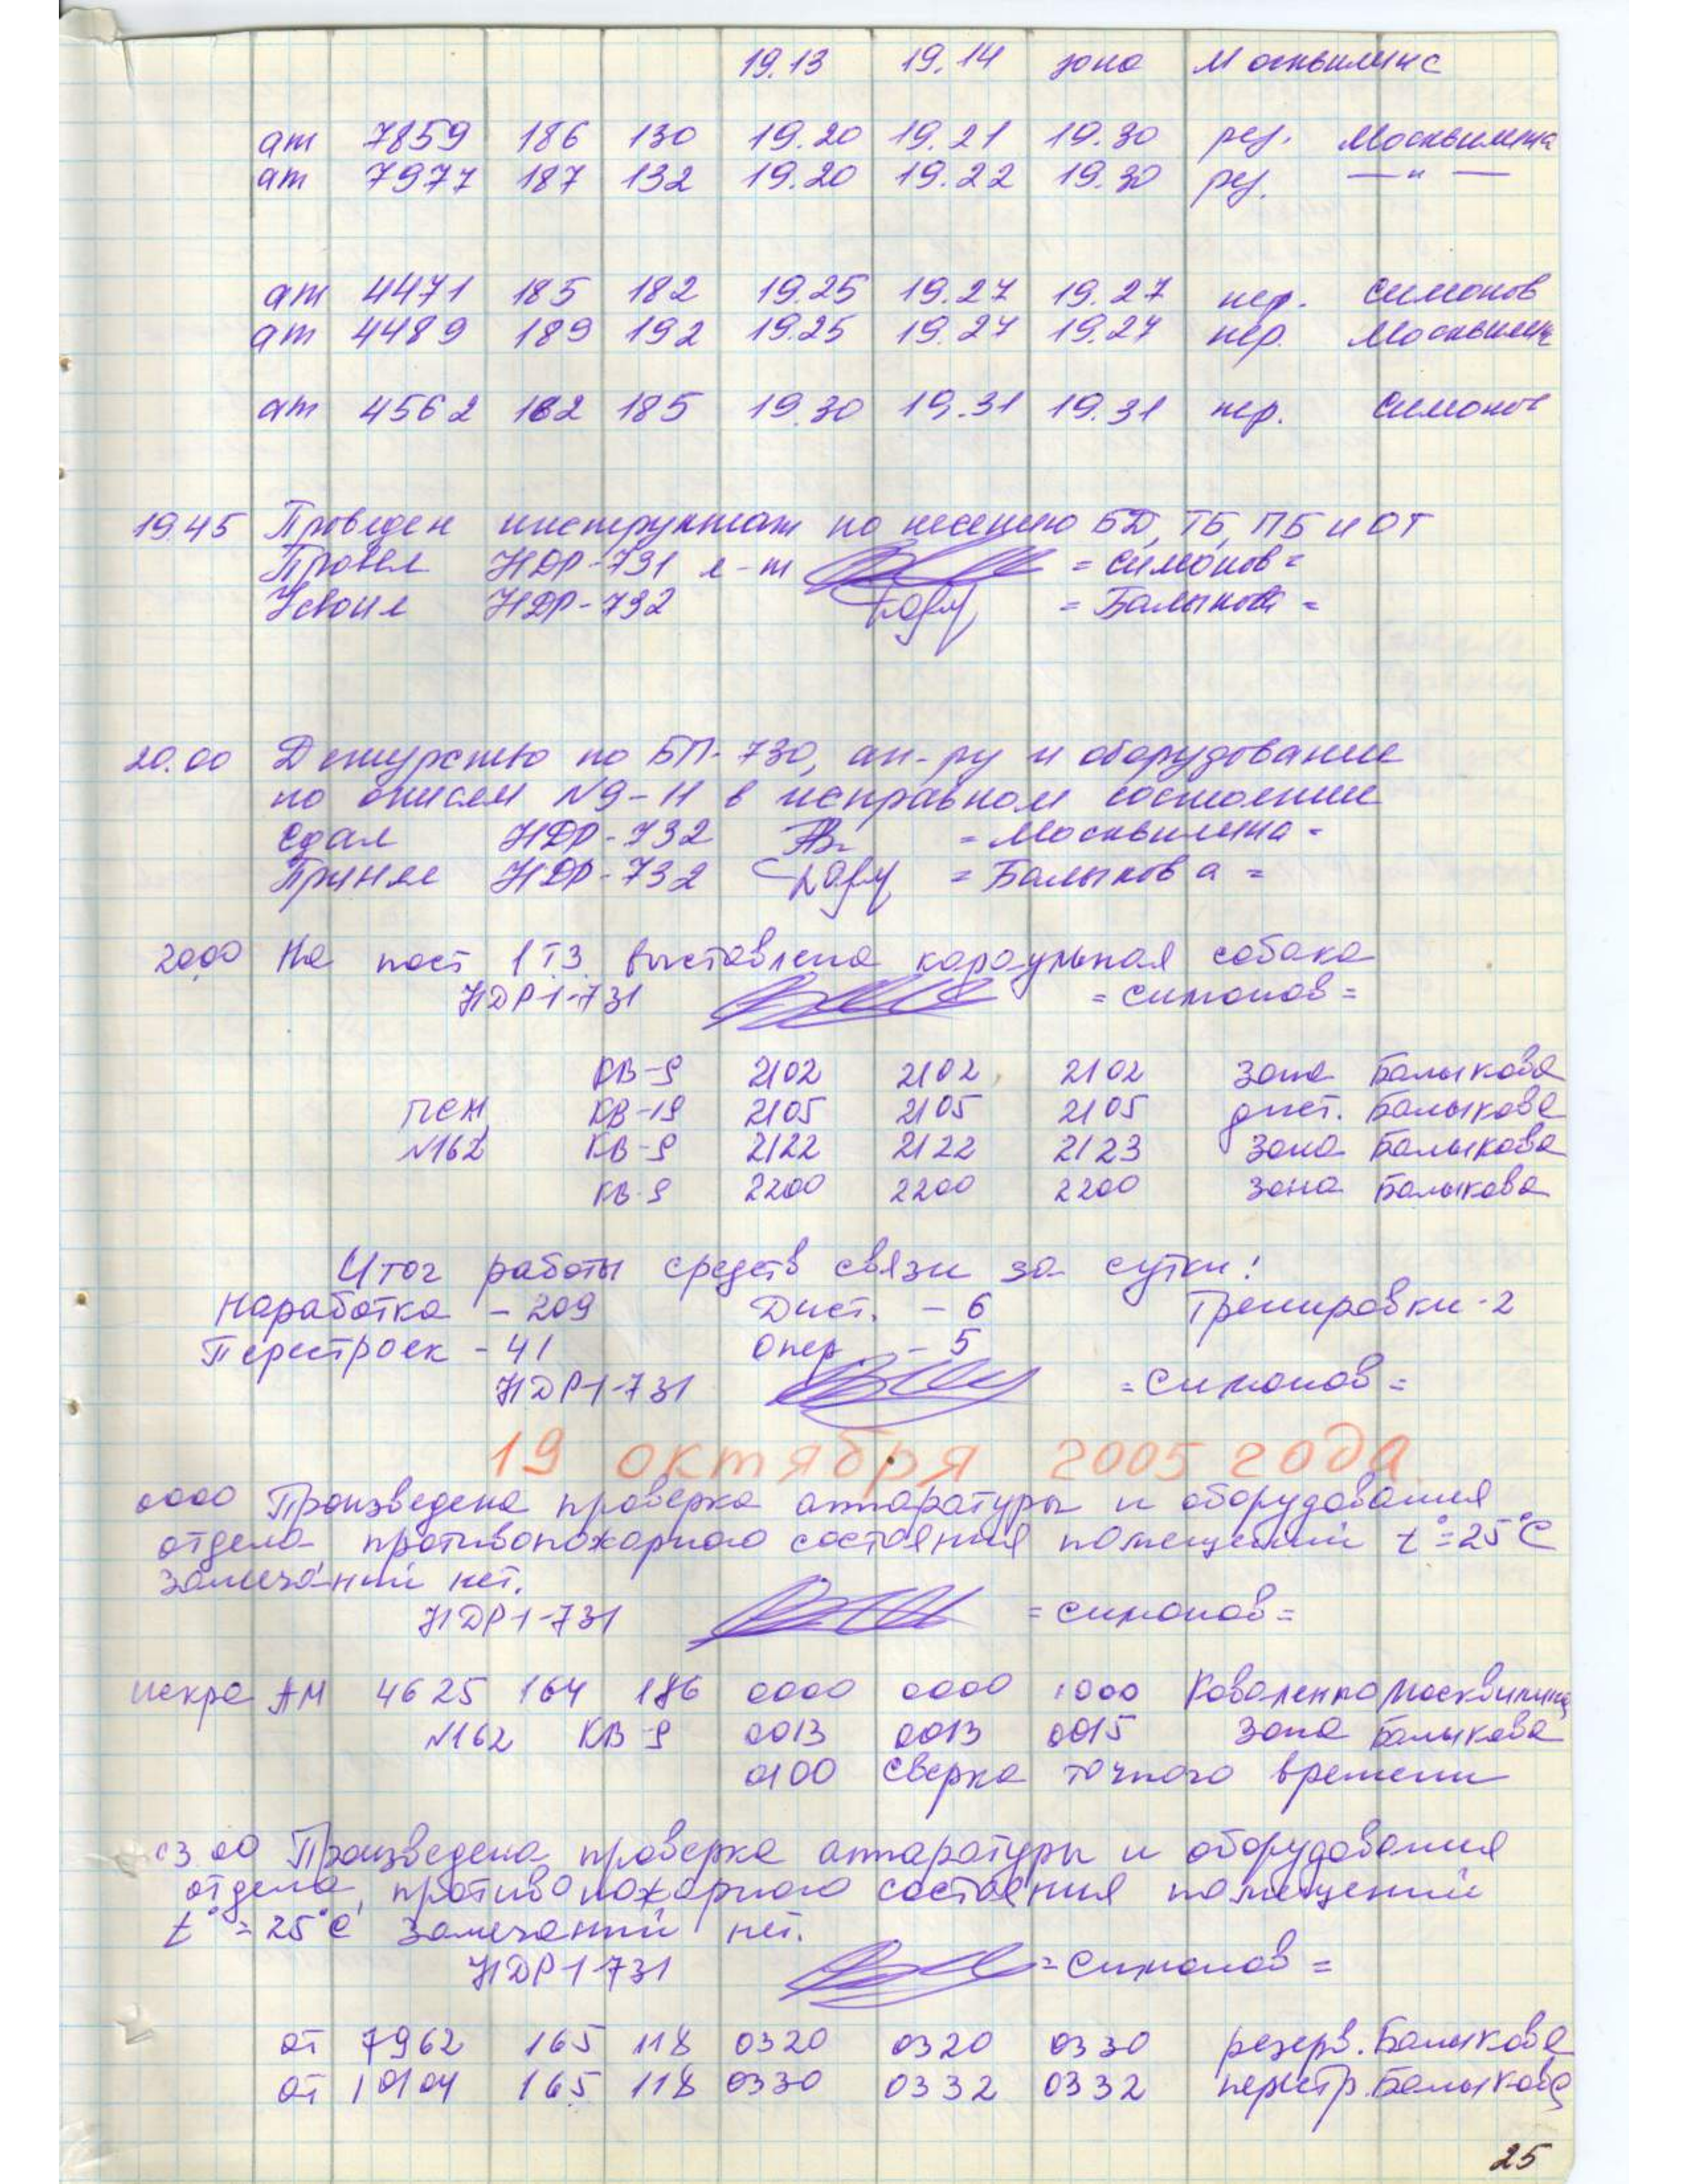 19.13 19.14 зона Москвитинс
ат 7859 186 130 19.20 19.21 19.30 рез. Москвитина
ат 7977 187 132 19.20 19.22 19.30 рез. — " —
ат 4471 185 182 19.25 19.27 19.27 пер. Симонов
ат 4489 189 192 19.25 19.27 19.27 пер.
ат 4562 162 185 19.30 19.31 19.31 пер. Симонов
19.45 Проведен инструктаж по несению БД, ТБ, ПБ и ОТ
Провел НДР-731 л-т = Симонов =
Усвоил НДР-732 = Балыкова =
20.00 Дежурство по БП-730, ап-ру и оборудование
по описям N9-11 в исправном состоянии
Сдал НДР-732 = Москвитина =
Принял НДР-732 = Балыкова =
20.00 На пост 1 ТЗ выставлена караульная собака
НДР1-731 = Симонов =
КВ-9 2102 2102 2102 зона Балыкова
ПСЖ КВ-19 2105 2105 2105 дист. Балыкова
N162 КВ-9 2122 2122 2123 зона Балыкова
КВ-9 2200 2200 2200 зона Балыкова
Итог работы средств связи за сутки:
Наработка - 209 Дист. - 6 Тренировки - 2
Перестроек - 41 Опер. - 5
НДР1-731 = Симонов =
19 октября 2005 года.
0000 Произведена проверка аппаратуры и оборудования
отдела противопожарного состояния помещений t°=25°С
замечаний нет.
НДР1-731 = Симонов =
искра АМ 4625 164 186 0000 0000 1000 Коваленко Москвитина
N162 КВ-9 0013 0013 0015 зона Балыкова
0100 Сверка точного времени
03.00 Произведена проверка аппаратуры и оборудования
отдела, противопожарного состояния помещений
t°=25°С замечаний нет.
НДР1-731 = Симонов =
ат 7962 165 118 0320 0320 0330 резерв. Балыкова
ат 10104 165 118 0330 0332 0332 перестр. Балыкова
25